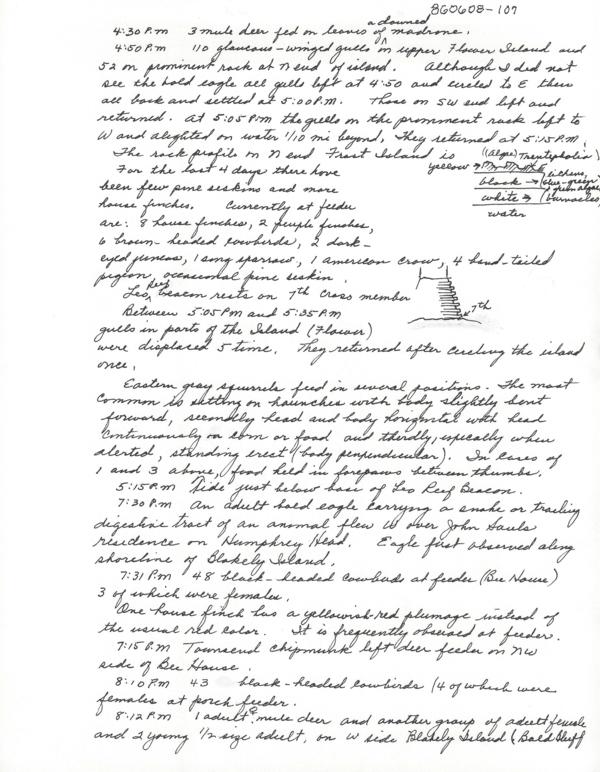 860608-107
4:30 P.m 3 mule deer fed on leaves of a downed madrone.
4:50 P.m 110 glaucous-winged gulls on upper Flower Island and
52 on prominent rock at N end of island. Although I did not
see the bald eagle all gulls left at 4:50 and circled to E then
all back and settled at 5:00 P.M. Those on SW end left and
returned. At 5:05 P.M the gulls on the prominent rock left to
W and alighted on water 1/10 mi beyond, They returned at 5:15 P.M.
The rock profile on N end Frost Island is
yellow → (algae) Trentepholia)
black → (lichens, blue-green & green algae
white → (barnacles)
water
For the last 4 days there have
been few pine seskins and more
house finches. Currently at feeder
are: 8 house finches, 2 purple finches,
6 brown-headed cowbirds, 2 dark-
eyed juncos, 1 song sparrow, 1 american crow, 4 band-tailed
pigeon, occasional pine seskin.
Leo Reef Beacon rests on 7th cross member
7th
Between 5:05 P.m and 5:35 P.m
gulls in parts of the Island (Flower)
were displaced 5 time. They returned after circling the island
once.
Eastern gray squirrels feed in several positions. The most
common is sitting on haunches with body slightly bent
forward, secondly head and body horizontal with head
continuously on corn or food and thirdly, especially when
alerted, standing erect (body perpendicular). In cases of
1 and 3 above, food held in forepaws between thumbs.
5:15 P.m Tide just below base of Leo Reef Beacon.
7:30 P.m an adult bald eagle carrying a snake or trailing
digestive tract of an animal flew W over John Sauls
residence on Humphrey Head. Eagle first observed along
shoreline of Blakely Island.
7:31 P.m 48 black-headed cowbirds at feeder (Bee House)
3 of which were females.
One house finch has a yellowish-red plumage instead of
the usual red color. It is frequently observed at feeder.
7:15 P.m Townsend chipmunk left deer feeder on NW
side of Bee House.
8:10 P.m 43 black-headed cowbirds (4 of which were
females at porch feeder.
8:12 P.m 1 adult ♀ mule deer and another group of adult female
and 2 young 1/2 size adult, on W side Blakely Island (Bald Bluff